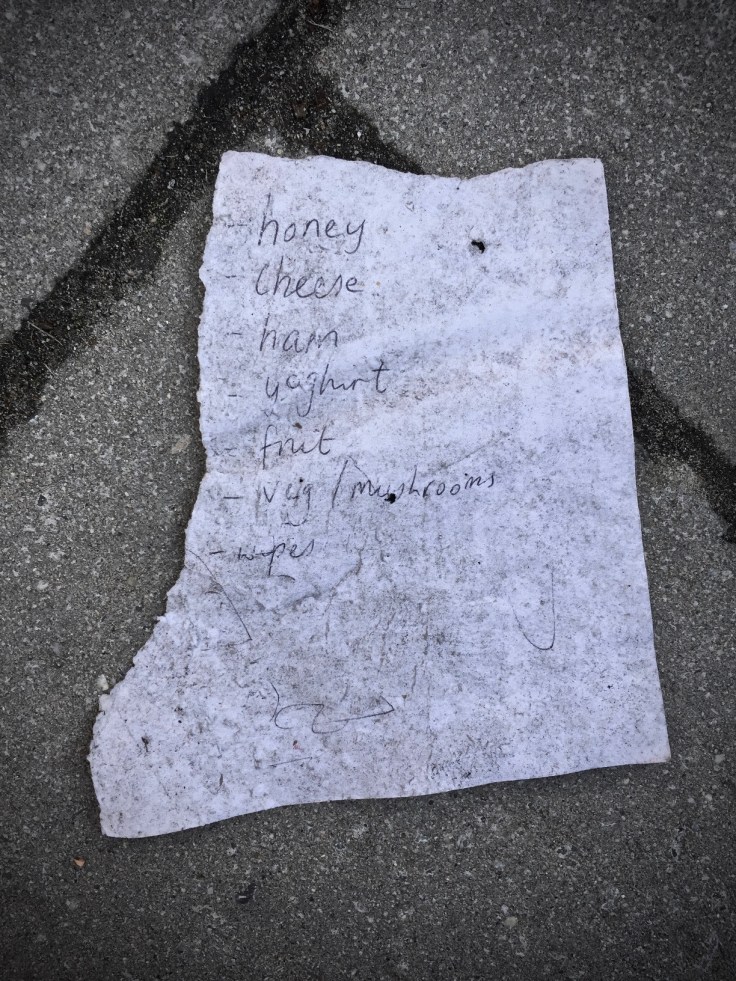 - honey
- cheese
- ham
- yoghurt
- fruit
- veg / mushrooms
- wipes